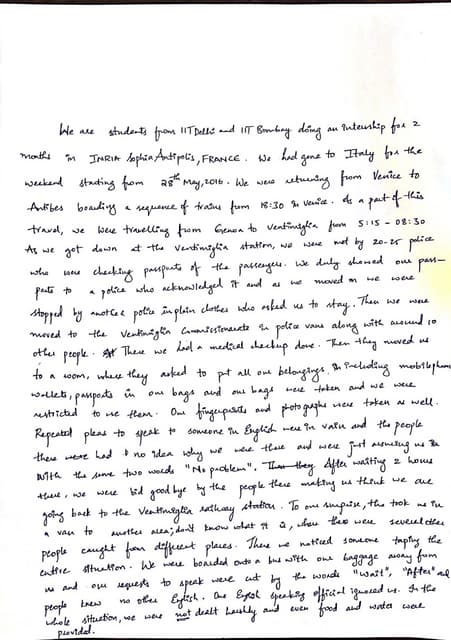 We are students from IIT Delhi and IIT Bombay doing an internship for 2
months in INRIA Sophia Antipolis, FRANCE. We had gone to Italy for the
weekend starting from 28th May, 2016. We were returning from Venice to
Antibes boarding a sequence of trains from 18:30 in Venice. As a part of this
travel, we were travelling from Genoa to Ventimiglia from 5:15 - 08:30
As we got down at the Ventimiglia station, we were met by 20-25 police
who were checking passports of the passengers. We duly showed our pass-
ports to a police who acknowledged it and as we moved on we were
stopped by another police in plain clothes who asked us to stay. Then we were
moved to the Ventimiglia Commissariate in police vans along with around 10
other people. There we had a medical checkup done. Then they moved us
to a room, where they asked to put all our belongings including mobilephone
wallets, passports in our bags and our bags were taken and we were
restricted to use them. Our fingerprints and photographs were taken as well.
Repeated pleas to speak to someone in English were in vain and the people
there had no idea why we were there and were just answering us
With the same two words "No problem". After waiting 2 hours
there, we were bid good bye by the people there making us think we are
going back to the Ventimiglia railway station. To our surprise, the took us in
a van to another area; don't know what it is, where there were several other
people caught from different places. There we noticed someone taping the
entire situation. We were boarded onto a bus with our baggage away from
us and our requests to speak were cut by the words "Wait", "After" and
people knew no other English. One English speaking official ignored us. In the
whole situation, we were not dealt harshly and even food and water were
provided.